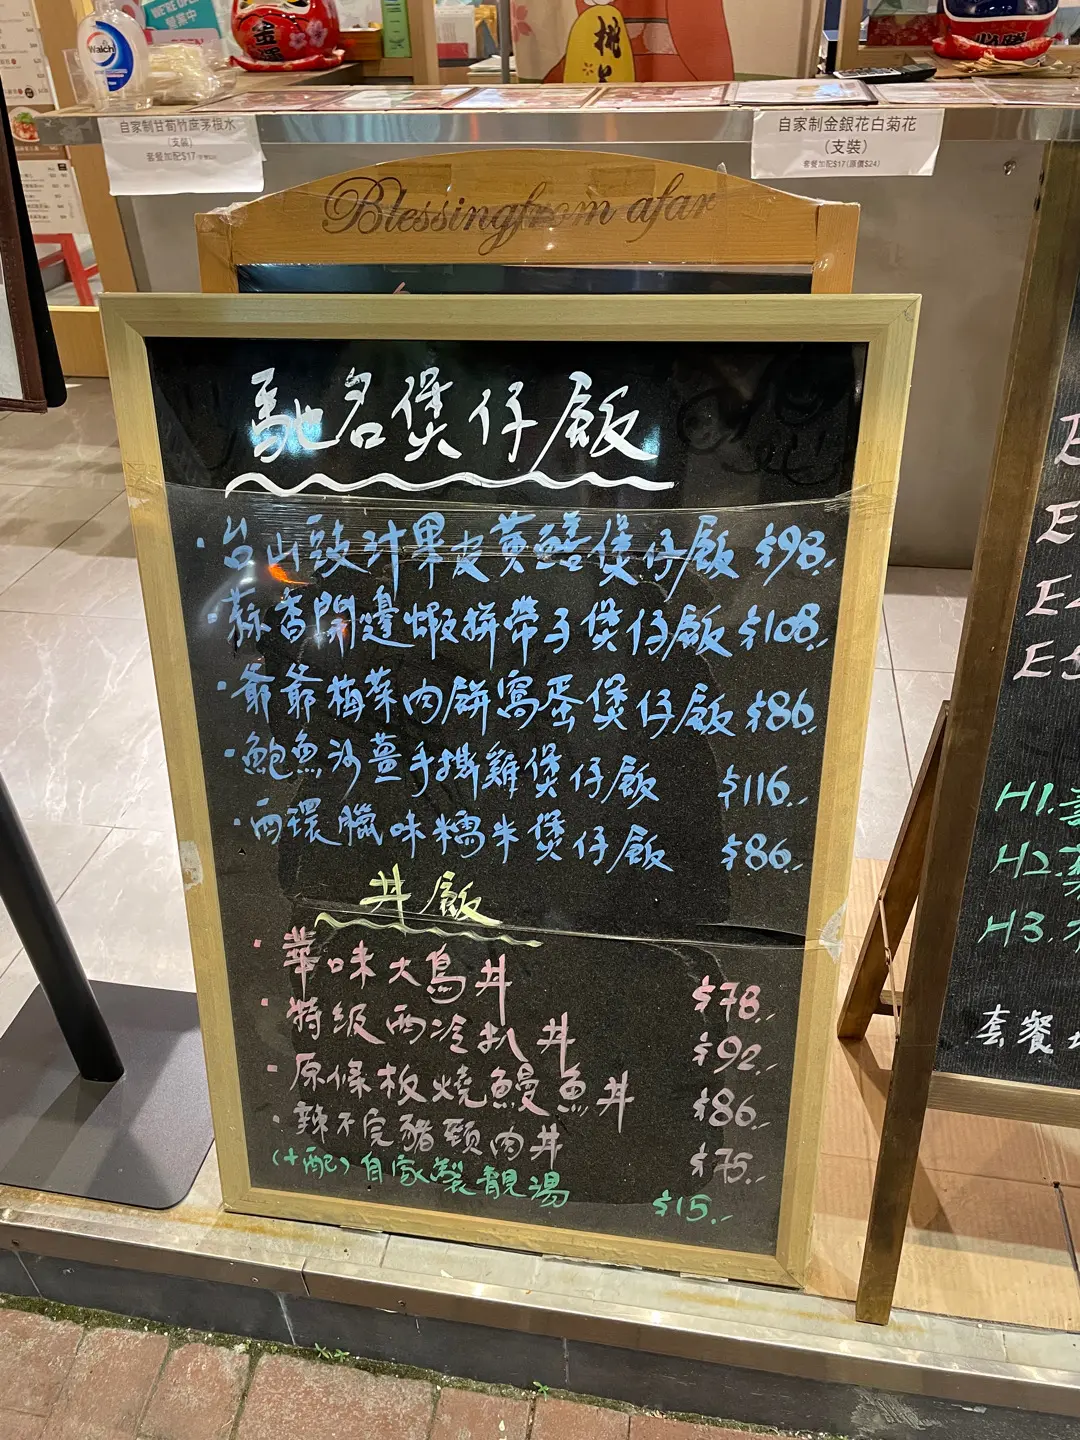 WE'RE OPEN
營業中
Walch
金運
桃
必勝
自家制甘荀竹庶茅根水
(支裝)
套餐加配$17
自家制金銀花白菊花
(支裝)
套餐加配$17(原價$24)
Blessingfrom afar
馳名煲仔飯
·台山豉汁果皮黃鱔煲仔飯 $98.
·蒜香開邊蝦拼帶子煲仔飯 $108.
·爺爺梅菜肉餅窩蛋煲仔飯 $86.
·鮑魚沙薑手撕雞煲仔飯 $116.
·西環臘味糯米煲仔飯 $86.
丼飯
·華味大鳥丼 $78.
·特級西冷扒丼 $92.
·原條板燒鰻魚丼 $86.
·辣不完豬頸肉丼 $75.
(十配)自家製靚湯 $15.
H1.
H2.
H3.
套餐